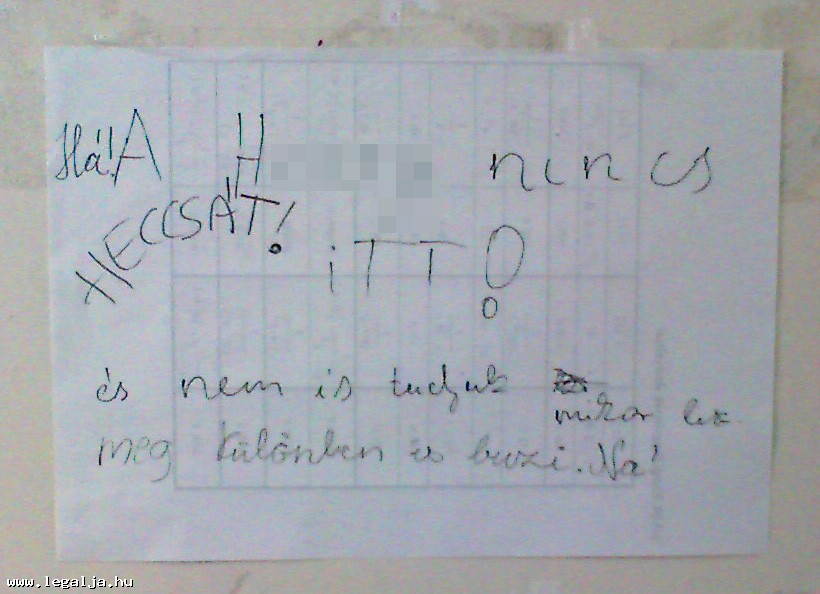 Há! A H nincs
HECCSÁT!
iTT!
és nem is tudjuk mikor lesz
meg különben is buzi. Na!
www.legalja.hu